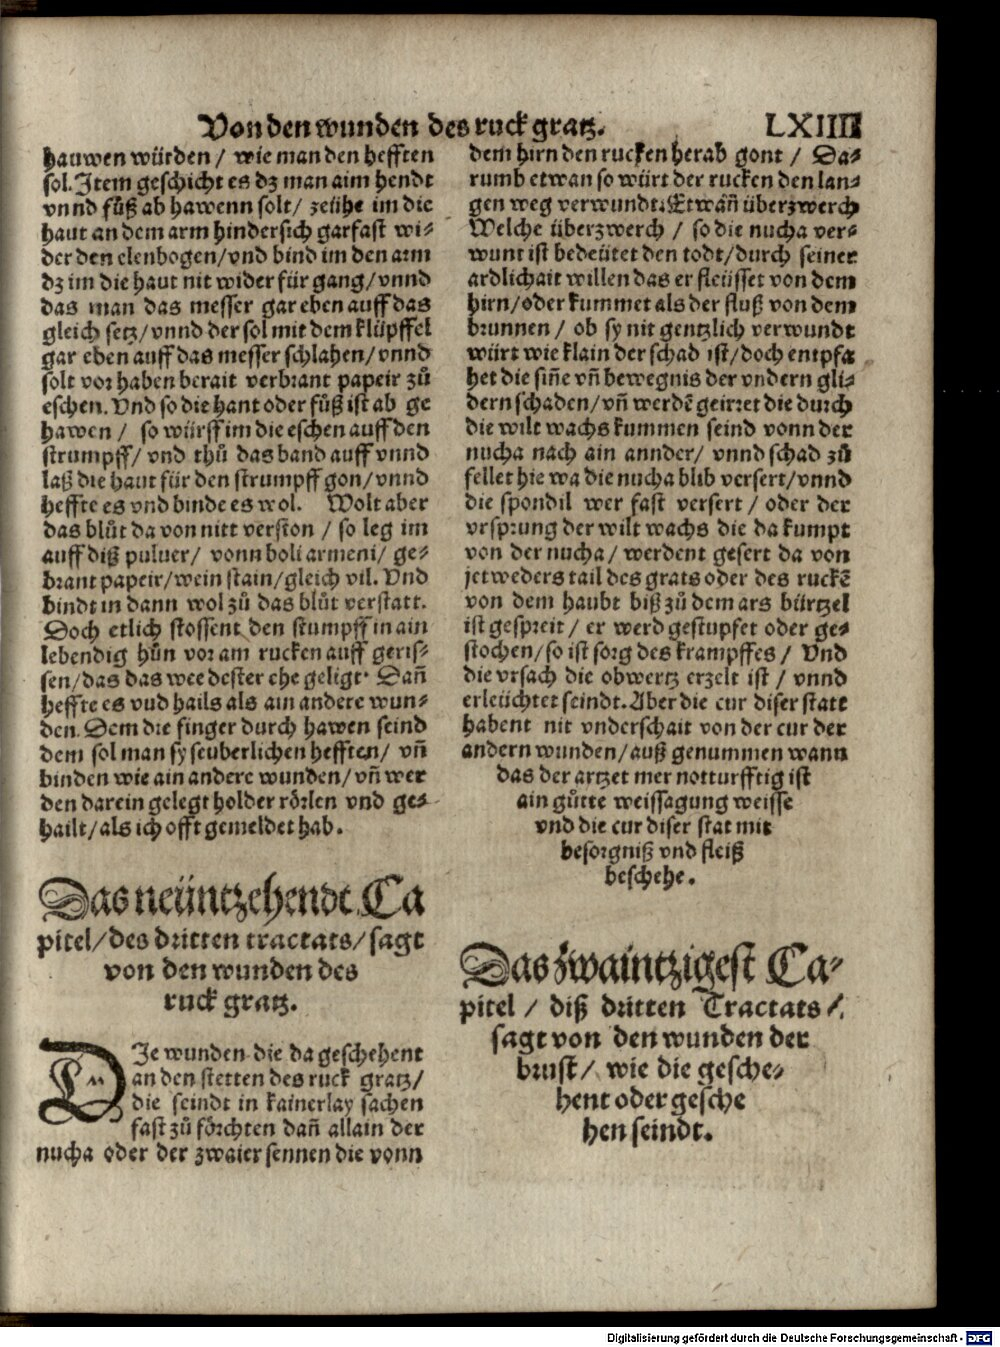 Von den wunden des ruck gratz. LXIIII
hauwen würden / wie man den hefften
sol. Item geschicht es dz man aim hendt
vnnd fůß ab hawenn solt/ zeühe im die
haut an dem arm hindersich gar fast wi⸗
der den elenbogen/vnd bind im den arm
dz im die haut nit wider für gang/vnnd
das man das messer gar eben auff das
gleich setz/vnnd der sol mit dem klüpffel
gar eben auff das messer schlahen/vnnd
solt vor haben berait verbrant papeir zů
eschen. Vnd so die hant oder fůß ist ab ge
hawen / so würff im die eschen auff den
strumpff/ vnd thů das band auff vnnd
laß die haut für den strumpff gon/vnnd
heffte es vnd binde es wol. Wolt aber
das blůt da von nitt verston / so leg im
auff diß puluer/ vonn boli armeni/ ge⸗
brant papeir/wein stain/gleich vil. Vnd
bindt in dann wol zů das blůt verstatt.
Doch etlich stossent den stumpff in ain
lebendig hůn vor am rucken auff geris⸗
sen/das das wee dester ehe geligt. Dañ
heffte es vud hails als ain andere wun⸗
den. Dem die finger durch hawen seind
dem sol man sy seuberlichen hefften/ vñ
binden wie ain andere wunden/vñ wer
den darein gelegt holder rörlen vnd ge⸗
hailt/als ich offt gemeldet hab.
Das neüntzehendt Ca
pitel/des dritten tractats/sagt
von den wunden des
ruck gratz.
DIe wunden die da geschehent
an den stetten des ruck gratz/
die seindt in kainerlay sachen
fast zů förchten dañ allain der
nucha oder der zwaier sennen die vonn
dem hirn den rucken herab gont / Da⸗
rumb etwan so würt der rucken den lan⸗
gen weg verwundt. Etwañ überzwerch
Welche überzwerch / so die nucha ver⸗
wunt ist bedeütet den todt/durch seiner
ardlichait willen das er fleüsset von dem
hirn/oder kummet als der fluß von dem
brunnen / ob sy nit gentzlich verwundt
würt wie klain der schad ist/doch entpfa
het die siñe vñ bewegnis der vndern gli⸗
dern schaden/vñ werdē geirret die durch
die wilt wachs kummen seind vonn der
nucha nach ain annder/ vnnd schad zů
fellet hie wa die nucha blib versert/vnnd
die spondil wer fast versert / oder der
vrsprung der wilt wachs die da kumpt
von der nucha/ werdent gesert da von
jetweders tail des grats oder des ruckē
von dem haubt biß zů dem ars bürtzel
ist gespreit / er werd gestupfet oder ge⸗
stochen/so ist sorg des krampffes / Vnd
die vrsach die obwertz erzelt ist / vnnd
erleüchtet seindt. Aber die cur diser statt
habent nit vnderschait von der cur der
andern wunden/auß genummen wann
das der artzet mer notturfftig ist
ain gůtte weissagung weisse
vnd die cur diser stat mit
besorgniß vnd fleiß
beschehe.
Das zwaintzigest Ca⸗
pitel / diß dritten Tractats /
sagt von den wunden der
brust/ wie die gesche⸗
hent oder gesche
hen seindt.
Digitalisierung gefördert durch die Deutsche Forschungsgemeinschaft - DFG